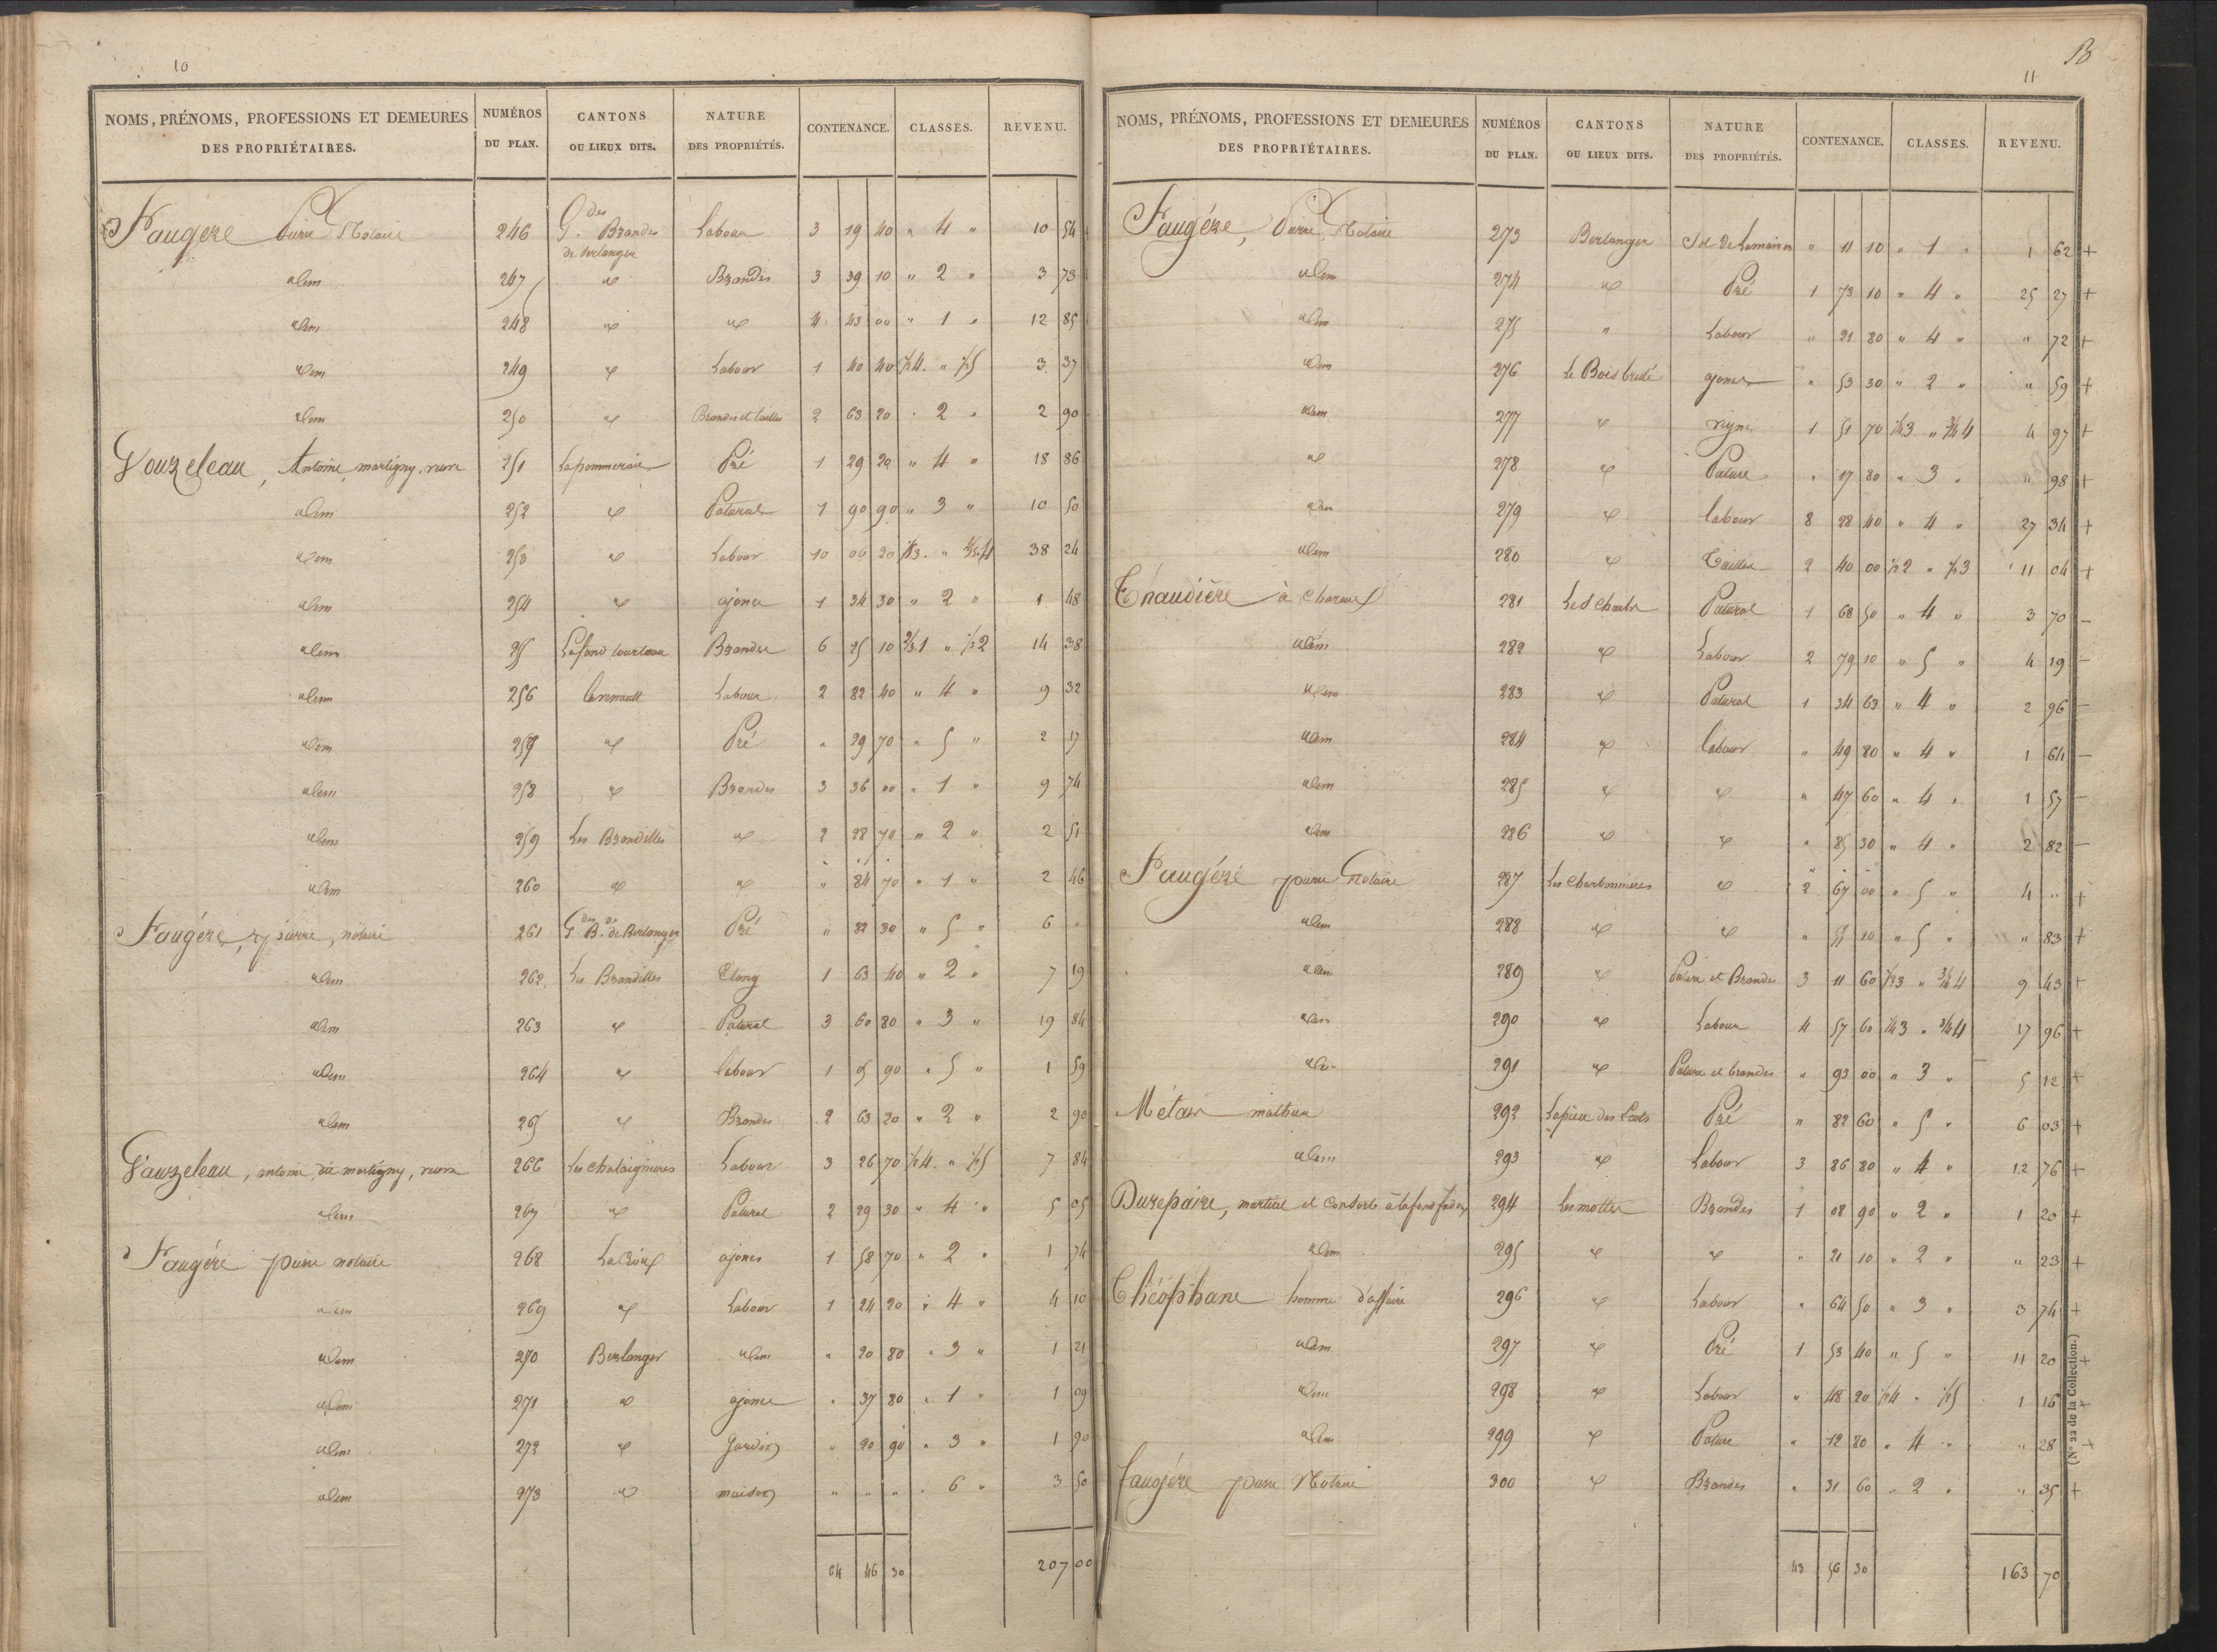 10
NOMS, PRÉNOMS, PROFESSIONS ET DEMEURES DES PROPRIÉTAIRES. NUMÉROS DU PLAN. CANTONS OU LIEUX DITS. NATURE DES PROPRIÉTÉS. CONTENANCE. CLASSES. REVENU.
Faugere Pierre Notaire 246 Gdes Brandes de Berlanger Labour 3 19 40 " 4 " 10 54
idem 247 id Brandes 3 39 10 " 2 " 3 73
idem 248 id id 4 43 00 " 1 " 12 85
idem 249 id Labour 1 40 40 1/2 4. " 1/2 5 3 37
idem 250 id Brandes et taillis 2 63 20 " 2 " 2 90
Vouzeleau, Antoine, martigny, 251 Lapommeraie Pré 1 29 20 " 4 " 18 86
idem 252 id Patural 1 90 90 " 3 " 10 50
idem 253 id Labour 10 06 20 1/3 3. " 4 38 24
idem 254 id ajonc 1 34 30 " 2 " 1 48
idem 255 Lafond Brandes 6 25 10 2/3 1 " 1/2 2 14 38
idem 256 Labour 2 82 40 " 4 " 9 32
idem 257 id Pré " 29 70 " 5 " 2 17
idem 258 id Brandes 3 36 00 " 1 " 9 74
idem 259 Les Brandilles id 2 28 70 " 2 " 2 51
idem 260 id id " 84 70 " 1 " 2 46
Faugére, pierre, notaire 261 Gdes Bdes de Berlanger Pré " 82 30 " 5 " 6 "
idem 262 Les Brandilles Etang 1 63 40 " 2 " 7 19
idem 263 id Patural 3 60 80 " 3 " 19 84
idem 264 id labour 1 05 90 " 5 " 1 59
idem 265 id Brandes 2 63 20 " 2 " 2 90
Vauzeleau, antoine dit martigny, 266 Les chataigneres Labour 3 26 70 1/2 4. " 1/2 5 7 84
idem 267 id Patural 2 29 30 " 4 " 5 05
Faugére pierre notaire 268 La Croix ajoncs 1 58 70 " 2 " 1 74
idem 269 id Labour 1 24 20 " 4 " 4 10
idem 270 Berlanger idem " 20 80 " 3 " 1 21
idem 271 id ajonc " 37 80 " 1 " 1 09
idem 272 id Jardin " 20 90 " 3 " 1 90
idem 273 id maison " " " " 6 " 3 50
64 46 30 207 00
B
11
NOMS, PRÉNOMS, PROFESSIONS ET DEMEURES DES PROPRIÉTAIRES. NUMÉROS DU PLAN. CANTONS OU LIEUX DITS. NATURE DES PROPRIÉTÉS. CONTENANCE. CLASSES. REVENU.
Faugére, Pierre Notaire 273 Berlanger Sol de Lamaison " 11 10 " 1 " 1 62 +
idem 274 id Pré 1 73 10 " 4 " 25 27 +
idem 275 " Labour " 21 80 " 4 " " 72 +
idem 276 Le Bois brulé ajonc " 53 30 " 2 " " 59 +
idem 277 id vigne 1 51 70 1/4 3 " 3/4 4 4 97 +
id 278 id Pature " 17 80 " 3 " " 98 +
idem 279 id labour 8 28 40 " 4 " 27 34 +
idem 280 id Taillis 2 40 00 1/2 2 " 1/2 3 11 04 +
Thaudière à Charoux 281 Patural 1 68 50 " 4 " 3 70 -
idem 282 id Labour 2 79 10 " 5 " 4 19 -
idem 283 id Patural 1 34 63 " 4 " 2 96 -
idem 284 id labour " 49 80 " 4 " 1 64 -
idem 285 id id " 47 60 " 4 " 1 57 -
idem 286 id id " 85 30 " 4 " 2 82 -
Faugéré pierre Notaire 287 Les Charbonnieres id 2 67 00 " 5 " 4 " +
idem 288 id id " 55 20 " 5 " " 83 +
idem 289 id Pature et Brandes 3 11 60 1/2 3 " 3/4 4 9 43 +
idem 290 id Labour 4 57 60 1/4 3 " 3/4 4 17 96 +
idem 291 id Pature et brandes " 93 00 " 3 " 5 12 +
Métais 292 Pré " 82 60 " 5 " 6 03 +
idem 293 id Labour 3 86 80 " 4 " 12 76 +
Durepaire, martial et Consorts 294 Les mottes Brandes 1 08 90 " 2 " 1 20 +
idem 295 id id " 21 10 " 2 " " 23 +
Théophane homme d'affaire 296 id Labour " 64 50 " 3 " 3 74 +
idem 297 id Pré 1 53 40 " 5 " 11 20 +
idem 298 id Labour " 48 20 1/2 4 " 1/2 5 1 16 +
idem 299 id Pature " 12 80 " 4 " " 28 +
faugére pierre Notaire 300 id Brandes " 31 60 " 2 " " 35 +
43 56 30 163 70
(N° 22 de la Collection.)